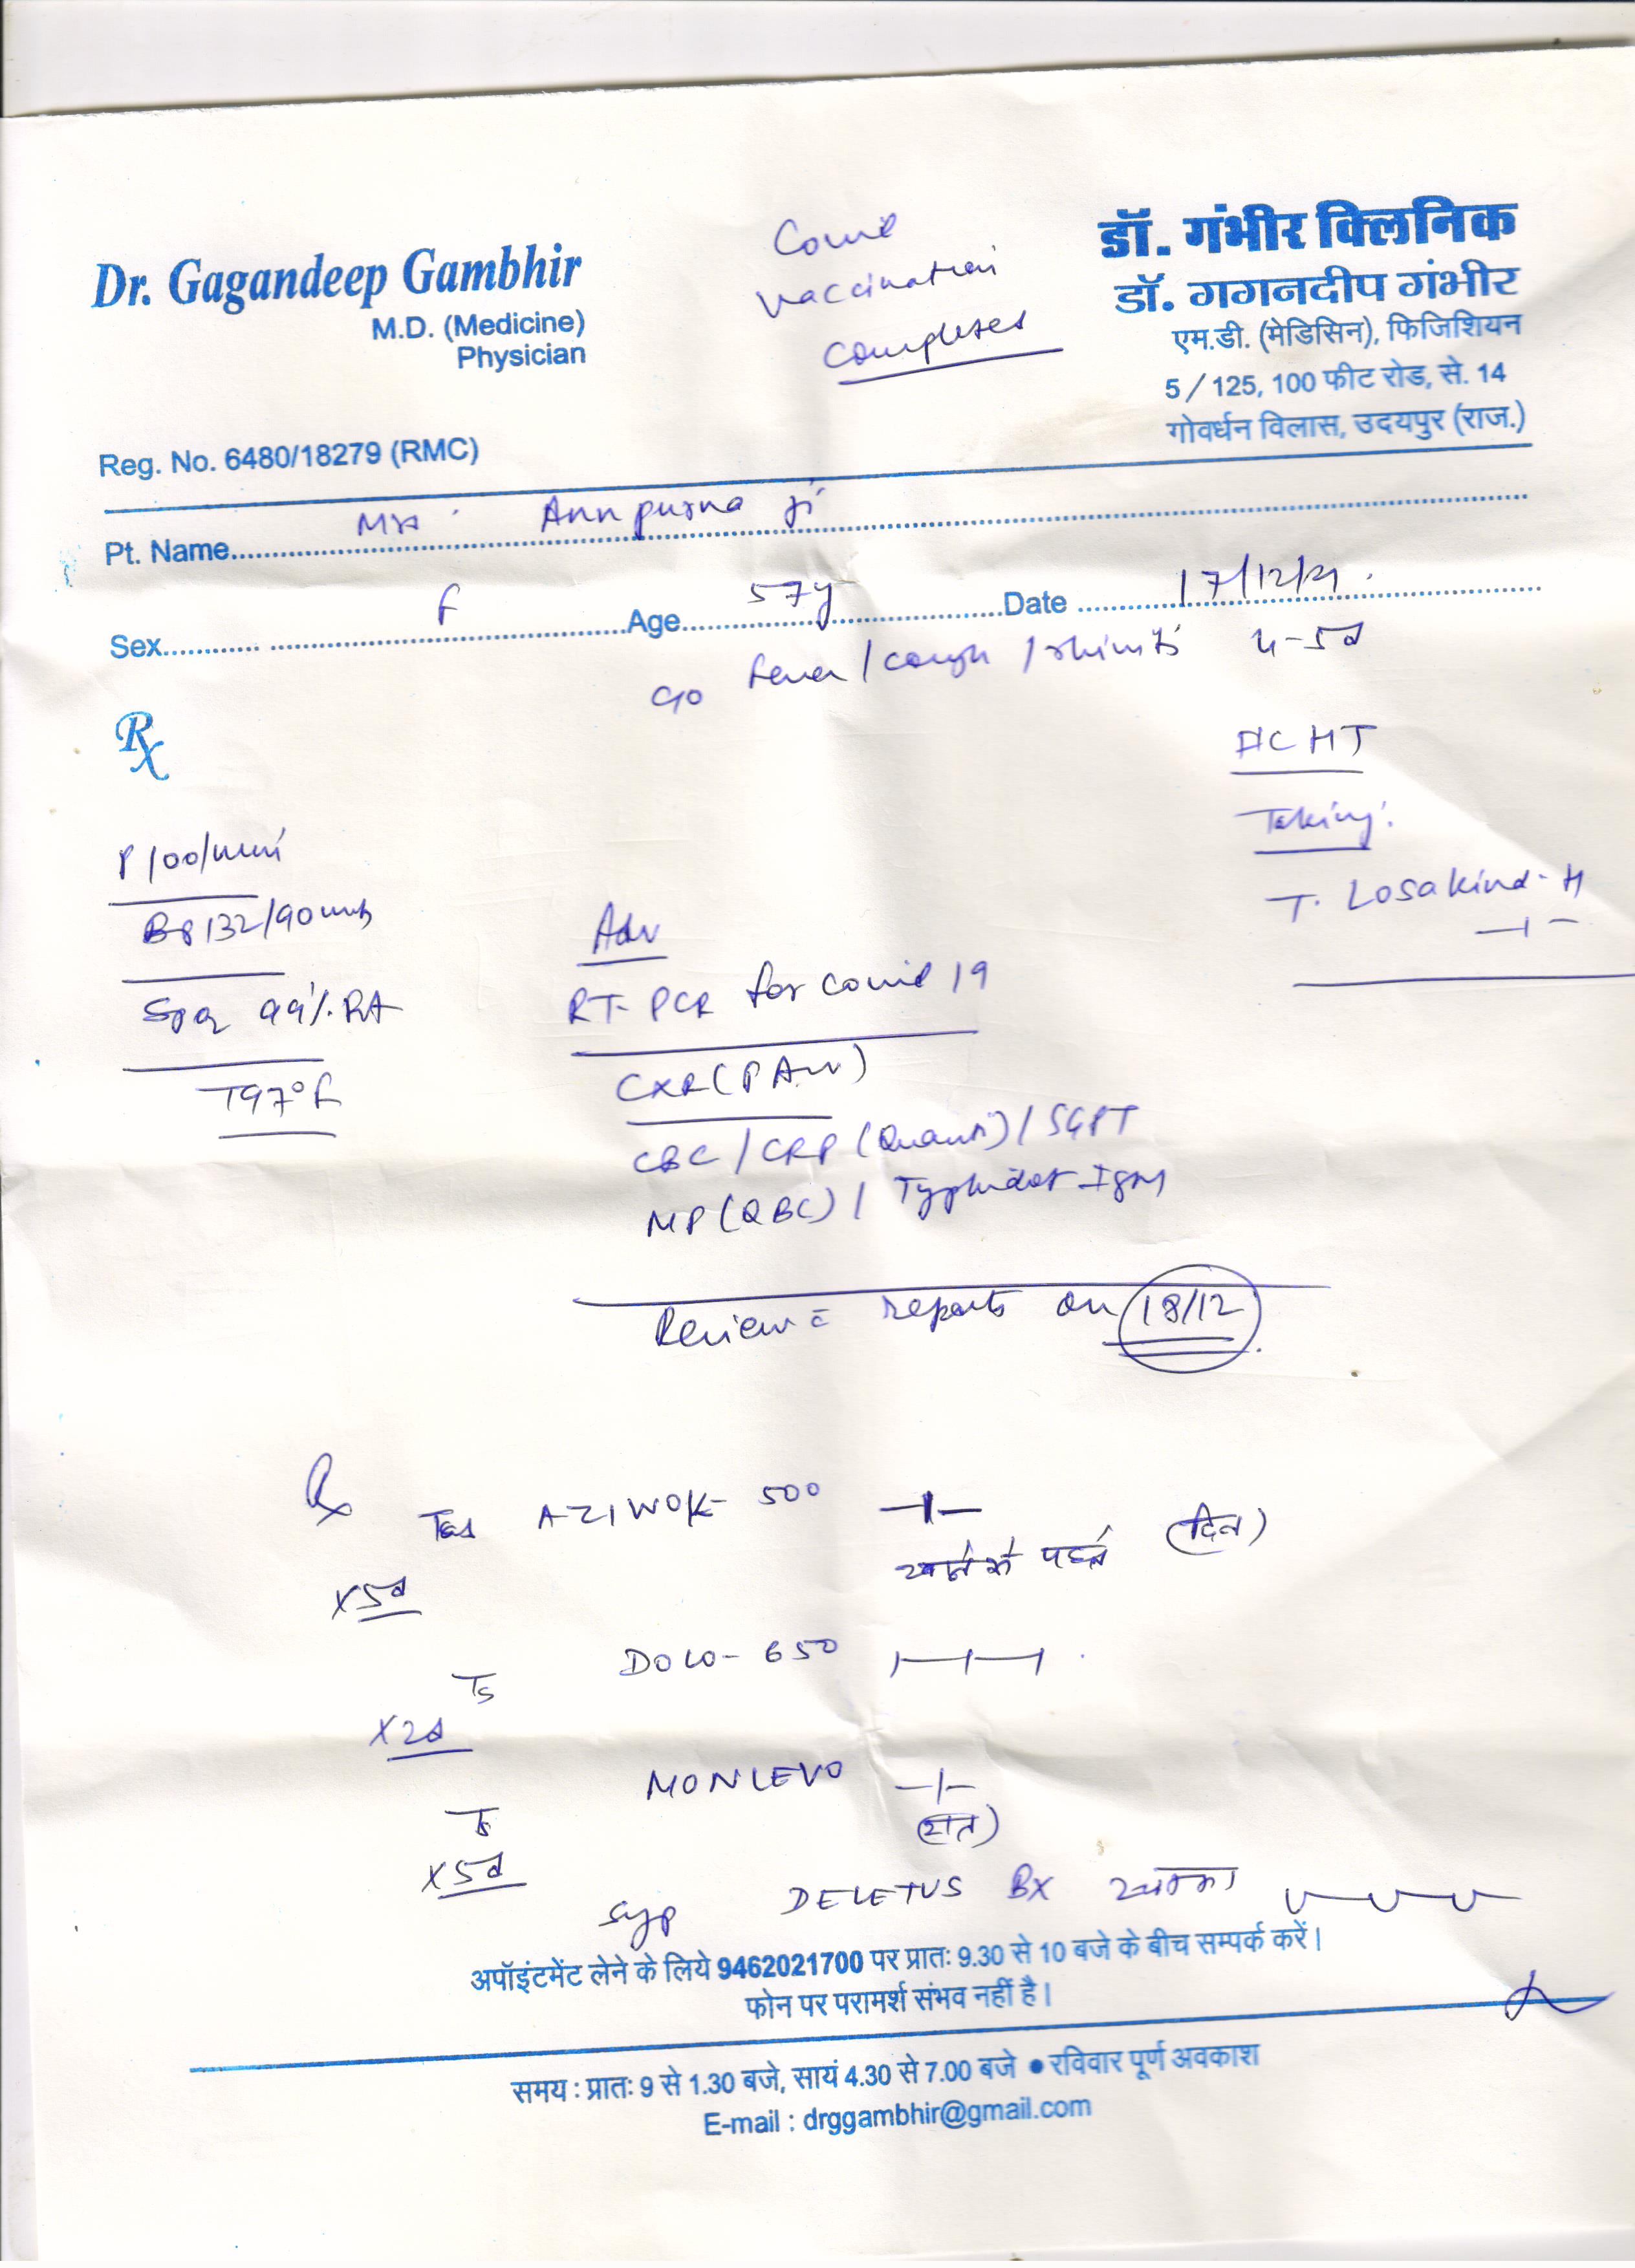 Dr. Gagandeep Gambhir
M.D. (Medicine)
Physician
Reg. No. 6480/18279 (RMC)
Covid
vaccination
completed
डॉ. गंभीर क्लिनिक
डॉ. गगनदीप गंभीर
एम.डी. (मेडिसिन), फिजिशियन
5/125, 100 फीट रोड, से. 14
गोवर्धन विलास, उदयपुर (राज.)
Pt. Name Mrs. Annpurna ji
Sex F Age 57y Date 17/12/21.
C/o fever / cough / rhinitis 4-5d
Rx
HT
Taking:
T. Losakind-H
P 100/min
BP 132/90
SpO2 99% RA
T 97°F
Adv
RT-PCR for covid 19
CXR (PAv)
CBC / CRP (Quanti) / SGPT
MP (QBC) / Typhidot IgM
Review c̄ reports on 18/12
Rx
Tab AZIWOK-500
खाने से पहले (दिन)
x5d
T DOLO-650
x2d
T MONLEVO
(रात)
x5d
Syp DELETUS BX
अपॉइंटमेंट लेने के लिये 9462021700 पर प्रातः 9.30 से 10 बजे के बीच सम्पर्क करें।
फोन पर परामर्श संभव नहीं है।
समय : प्रातः 9 से 1.30 बजे, सायं 4.30 से 7.00 बजे ● रविवार पूर्ण अवकाश
E-mail : drggambhir@gmail.com